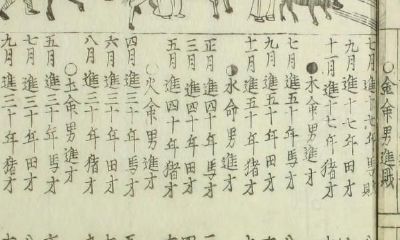 ○金命男進財
七月進十七年馬財
九月進十七年田才
十一月進十七年猪才
●木命男進才
七月進五十年馬才
九月進五十年田才
十一月進五十年猪才
●水命男進才
正月進四十年馬才
三月進四十年田才
五月進四十年猪才
○火命男進才
四月進二十年馬才
六月進二十年田才
八月進二十年猪才
○土命男進才
五月進三十年馬才
七月進三十年田才
九月進三十年猪才